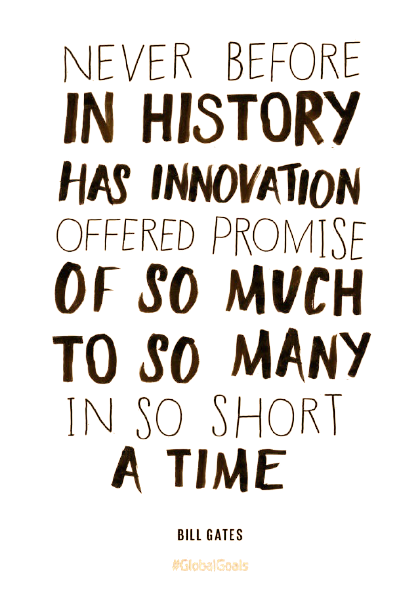 NEVER BEFORE
IN HISTORY
HAS INNOVATION
OFFERED PROMISE
OF SO MUCH
TO SO MANY
IN SO SHORT
A TIME
BILL GATES
#GlobalGoals